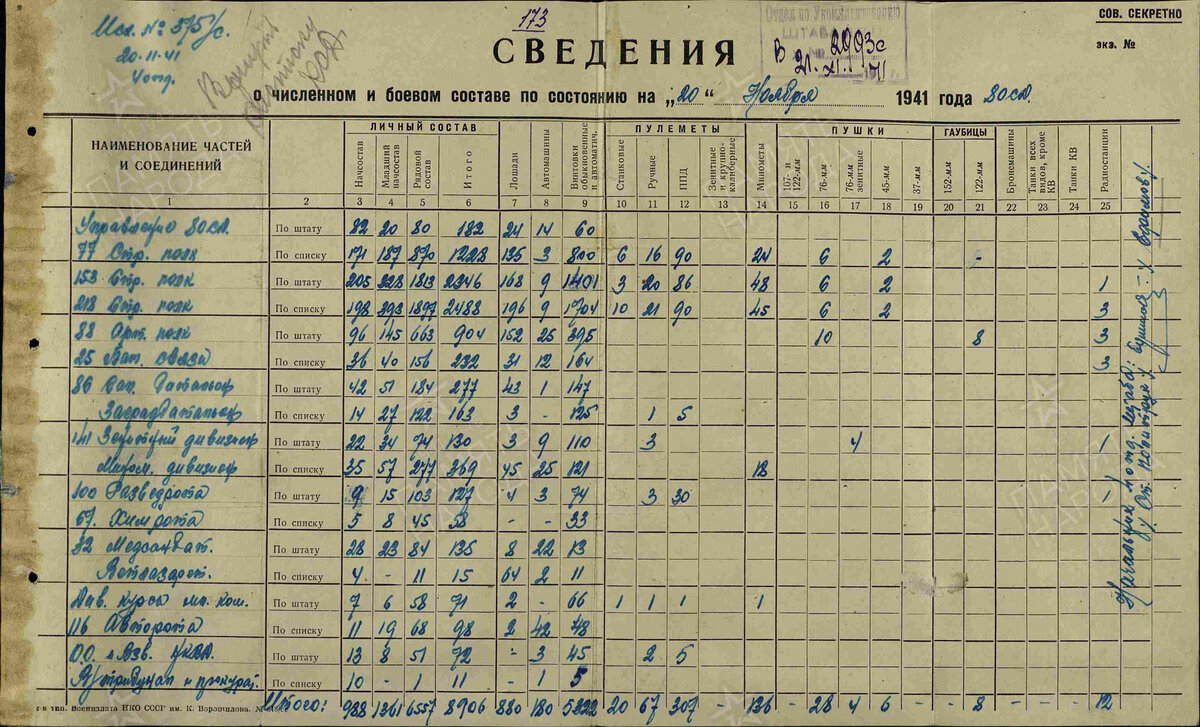 173
СОВ. СЕКРЕТНО
экз. №
Исх. № 575/с.
20-11-41
4 отд.
Отдел по Укомплектованию
ШТАБА
В 2003с
21. XI. 1941 г.
СВЕДЕНИЯ
о численном и боевом составе по состоянию на „20“ Ноября 1941 года 80сд.
НАИМЕНОВАНИЕ ЧАСТЕЙ И СОЕДИНЕНИЙ
ЛИЧНЫЙ СОСТАВ
Начсостав Младший начсостав Рядовой состав Итого
Лошади Автомашины Винтовки обыкновенные и автоматич.
ПУЛЕМЕТЫ
Станковые Ручные ППД Зенитные и крупно-калиберные
Минометы
ПУШКИ
107- и 122-мм 76-мм 76-мм зенитные 45-мм 37-мм
ГАУБИЦЫ
152-мм 122-мм
Бронемашины Танки всех видов, кроме КВ Танки КВ Радиостанции
1 2 3 4 5 6 7 8 9 10 11 12 13 14 15 16 17 18 19 20 21 22 23 24 25
Управление 80сд. По штату 82 20 80 182 24 14 60
77 Стр. полк По списку 171 187 870 1228 135 3 800 6 16 90 24 6 2 -
153 Стр. полк По штату 205 328 1813 2346 168 9 1401 3 20 86 48 6 2 1
218 Стр. полк По списку 198 393 1897 2488 196 9 1704 10 21 90 45 6 2 3
88 Арт. полк По штату 96 145 663 904 152 25 395 10 8 3
25 Бат. связи По списку 36 40 156 232 31 12 164 3
86 Сап. батальон По штату 42 51 184 277 43 1 147
Заградбатальон По списку 14 27 122 163 3 - 125 1 5
141 Зенитный дивизион По штату 22 34 74 130 3 9 110 3 4 1
Мином. дивизион По списку 35 57 277 369 45 25 121 18
100 Разведрота По штату 9 15 103 127 4 3 74 3 30 1
67. Химрота По списку 5 8 45 58 - - 33
82 Медсанбат. По штату 28 23 84 135 8 22 13
Ветлазарет. По списку 4 - 11 15 64 2 11
Див. курсы мл. ком. По штату 7 6 58 71 2 - 66 1 1 1 1
116 Авторота По списку 11 19 68 98 2 42 48
О.О. и Взв. НКВД. По штату 13 8 51 72 - 3 45 2 5
В/трибунал и прокурат. По списку 10 - 1 11 - 1 5
Итого: 988 1361 6557 8906 880 180 5822 20 67 307 - 136 - 28 4 6 - - 8 - - - 12
Начальник 4 отд. штаба:
ст. политрук
тип. Воениздата НКО СССР им. К. Ворошилова.